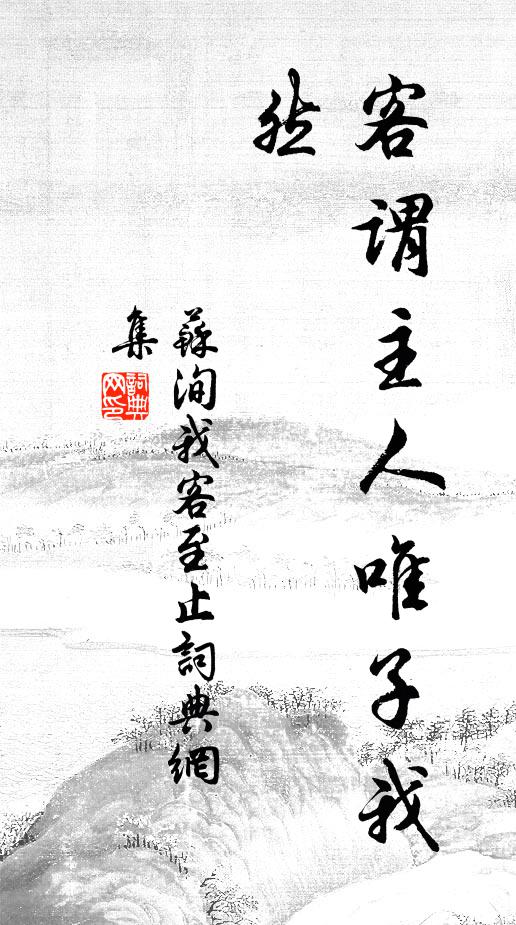 客謂主人唯子我
然
蘇洵我客至止詞典網
集
詞典
网印